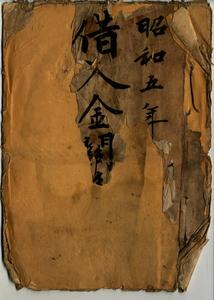 昭和五年
借入金